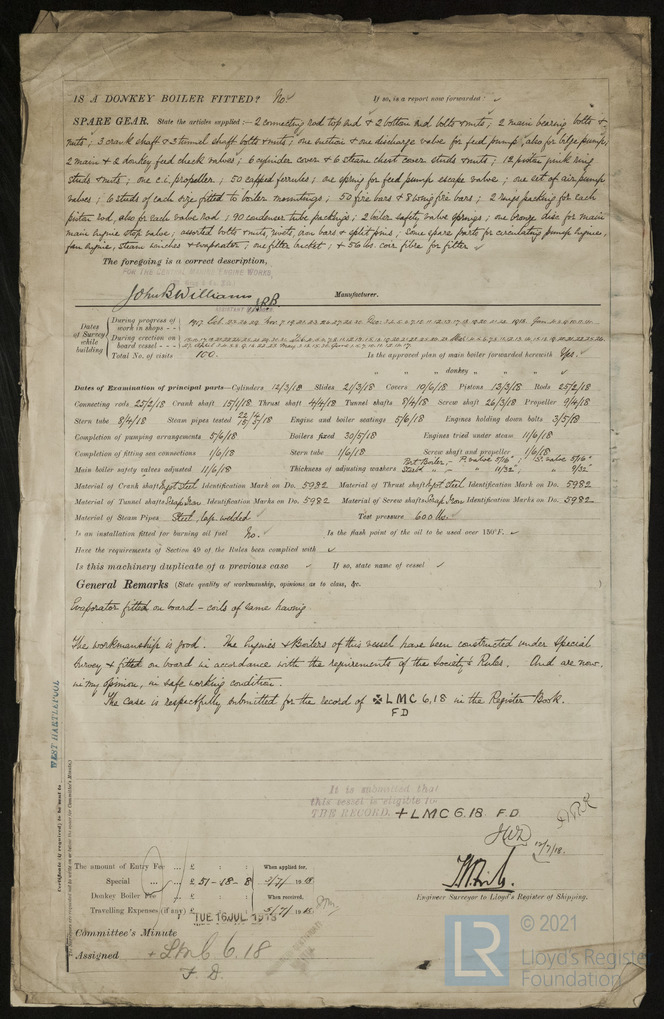 IS A DONKEY BOILER FITTED? No. ✓ If so, is a report now forwarded? ✓
SPARE GEAR. State the articles supplied:— 2 connecting rod top end & 2 bottom end bolts & nuts; 2 main bearing bolts &
nuts; 3 crank shaft & 3 tunnel shaft bolts & nuts; one suction & one discharge valve for feed pump, also for bilge pump,
2 main & 2 donkey feed check valves; 6 cylinder cover & 6 steam chest cover studs & nuts; 12 piston junk ring
studs & nuts; one c.i. propeller; 50 capped ferrules; one spring for feed pump escape valve; one set of air pump
valves; 6 studs of each size fitted to boiler mountings; 50 fire bars & 8 wing fire bars; 2 rings packing for each
piston rod, also for each valve rod; 90 condenser tube packings; 2 boiler safety valve springs; one bronze disc for main
main engine stop valve; assorted bolts & nuts, rivets, iron bars & split pins; some spare parts for circulating pump engine,
fan engine, steam winches & evaporator; one filter bucket; & 56 lbs. coir fibre for filter ✓
The foregoing is a correct description,
FOR THE CENTRAL MARINE ENGINE WORKS,
John B Williams Manufacturer.
Dates of Survey while building
During progress of work in shops - - 1917 Oct.
During erection on board vessel - - -
Total No. of visits 150. Is the approved plan of main boiler forwarded herewith Yes. ✓
" " " donkey " " " ✓
Dates of Examination of principal parts—Cylinders 12/3/18 Slides 21/3/18 Covers 10/6/18 Pistons 13/3/18 Rods 25/2/18
Connecting rods 25/2/18 Crank shaft 15/1/18 Thrust shaft 4/4/18 Tunnel shafts 8/4/18 Screw shaft 26/3/18 Propeller 9/4/18
Stern tube 8/4/18 Steam pipes tested Engine and boiler seatings 5/6/18 Engines holding down bolts 3/5/18
Completion of pumping arrangements 5/6/18 Boilers fixed 30/5/18 Engines tried under steam 11/6/18
Completion of fitting sea connections 1/6/18 Stern tube 1/6/18 Screw shaft and propeller 1/6/18
Main boiler safety valves adjusted 11/6/18 Thickness of adjusting washers Port Boiler,- P. valve 5/16"; S. valve 5/16"
Starbd " ,- " 11/32"; " 9/32"
Material of Crank shaft Ingot Steel Identification Mark on Do. 5982 Material of Thrust shaft Ingot Steel Identification Mark on Do. 5982
Material of Tunnel shafts Scrap Iron Identification Marks on Do. 5982 Material of Screw shafts Scrap Iron Identification Marks on Do. 5982
Material of Steam Pipes Steel, lap welded ✓ Test pressure 600 lbs. ✓
Is an installation fitted for burning oil fuel No. ✓ Is the flash point of the oil to be used over 150°F. ✓
Have the requirements of Section 49 of the Rules been complied with ✓
Is this machinery duplicate of a previous case ✓ If so, state name of vessel ✓
General Remarks (State quality of workmanship, opinions as to class, &c.
Evaporator fitted on board - coils of same having
The workmanship is good. The Engines & Boilers of this vessel have been constructed under Special
Survey & fitted on board in accordance with the requirements of the Society's Rules. And are now,
in my opinion, in safe working condition.
The case is respectfully submitted for the record of ✠ LMC 6,18 in the Register Book.
FD
WEST HARTLEPOOL
It is submitted that
this vessel is eligible for
THE RECORD. + LMC 6.18 F.D.
12/7/18.
The amount of Entry Fee ... £ : : When applied for,
Special ... ... £ 51-18-8 19 18
Donkey Boiler Fee ... £ : : When received,
Travelling Expenses (if any) £ : : 5/7/ 19 18
Engineer Surveyor to Lloyd's Register of Shipping.
TUE 16 JUL 1918
Committee's Minute
Assigned + LMC 6.18
F.D.
© 2021
LR
Lloyd's Register
Foundation